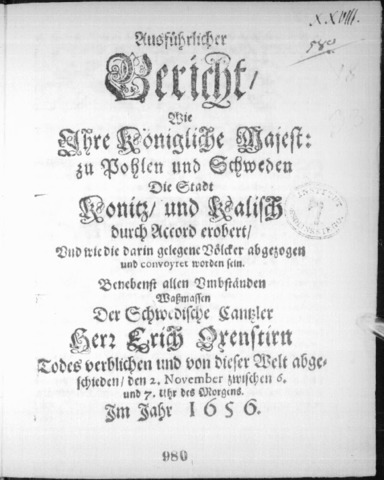 XXVIII.
580
Ausführlicher
Bericht/
Wie
Ihre Königliche Majest:
zu Pohlen und Schweden
Die Stadt
Konitz/ und Kalisch
durch Accord erobert/
Und wie die darin gelegene Völcker abgezogen
und convoyret worden sein.
Benebenst allen Umbständen
Waßmassen
Der Schwedische Cantzler
Herr Erich Oxenstirn
Todes verblichen und von dieser Welt abge-
schieden/ den 2. November zwischen 6.
und 7. Uhr des Morgens.
Im Jahr 1656.
980